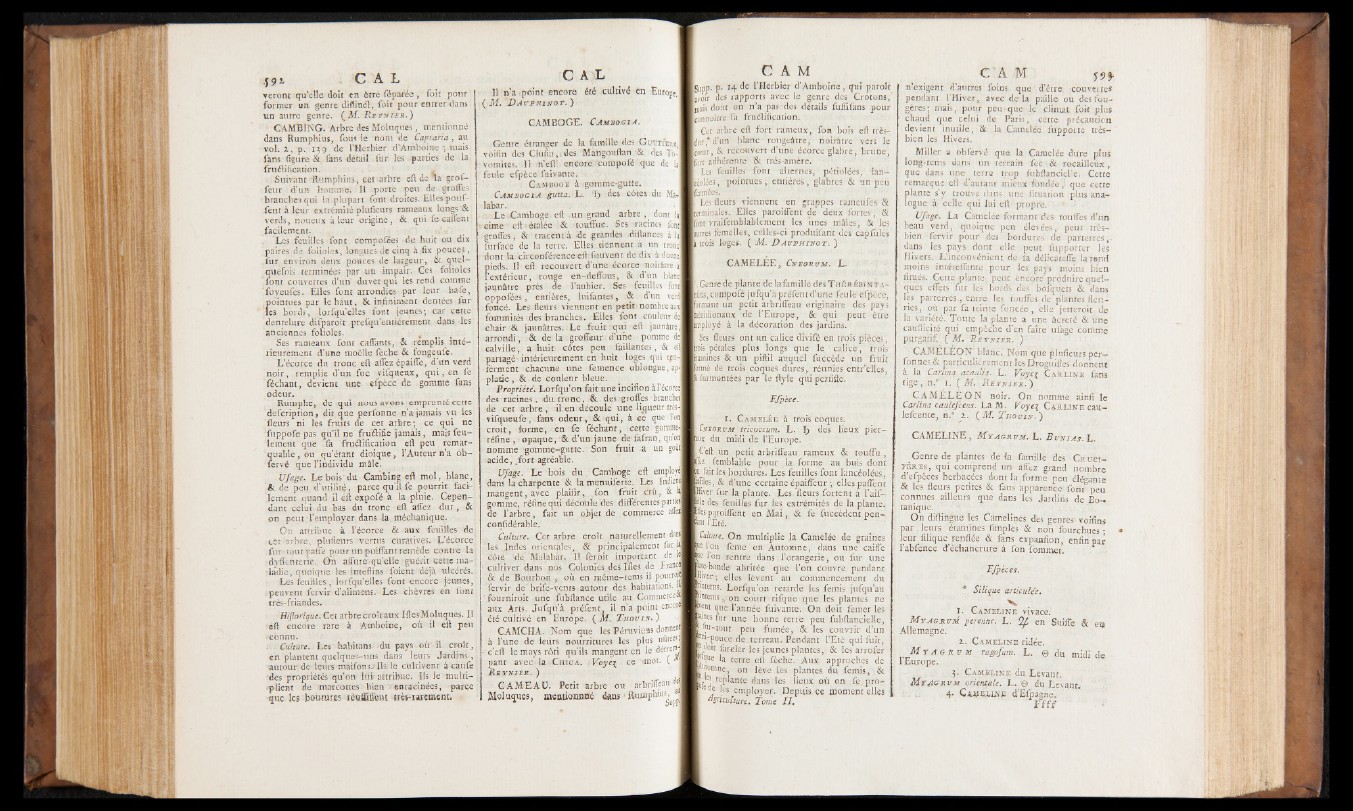 592 C A L
veront qu'elle doit en être séparée, soit pour
former un genre distinct, soit pour entrer dans
un autre genre. ( M. REYNIER. )
CAMBING. Arbre des Moluques, mentionné
dans Rumphius, sous le nom de Capraria, au
vol. 2, p. 139 de l'Herbier d'Amboine ; mais
sans figure & sans détail sur les parties de la
fructification.
Suivant Rumphius, cet arbre est de la gros-
seur d'un homme. Il porte peu de grosses
branches qui la plupart sont droites. Elles pous-
sent à leur extrémité plusieurs rameaux longs &
verds, noueux à leur origine, & qui se cassent
facilement.
Les feuilles sont composées de huit ou dix
paires de folioles, longues de cinq à six pouces,
sur environ deux pouces de largeur, & quel-
quefois terminées par un impair. Ces folioles
sont couvertes d'un duvet qui les rend comme
soyeuses. Elles sont arrondies par leur base,
pointues par le haut, & infiniment dentées sur
les bords, lorsqu'elles sont jeunes ; car cette
dentelure disparoît presqu'entièrement dans les
anciennes folioles.
Ses rameaux sont cassants, & remplis inté-
rieurement d'une moëlle sèche & fongeuse.
L'écorce du tronc est assez épaisse, d'un verd
noir, remplie d'un suc visqueux, qui, en se
séchant, devient une espèce de gomme sans
odeur.
Rumphe, de qui nous avons emprunté cette
description, dit que personne n'a jamais vu les
fleurs ni les fruits de cet arbre ; ce qui ne
suppose pas qu'il ne fructifie jamais, mais seu-
lement que sa fructification est peu remar-
quable, ou qu'étant dioïque, l'Auteur n'a ob-
servé que l'individu mâle.
Usage. Le bois du Cambing est mol, blanc,
& de peu d'utilité, parce qu'il se pourrit faci-
lement quand il est exposé à la pluie. Cepen-
dant celui du bas du tronc est assez dur, &
on peut l'employer dans la méchanique.
On attribue à l'écorce & aux feuilles de
cet arbre, plusieurs vertus curatives. L'écorce
sur-tout passe pour un puissant remède contre la
dyssenterie. On assure qu'elle guérit cette ma-
ladie, quoique les intestins soient déjà ulcérés.
Les feuilles, lorsqu'elles sont encore jeunes,
peuvent servir d'alimens. Les chèvres en sont
très-friandes.
Historique. Cet arbre croît aux Isles Moluques. Il
est encore rare à Amboine, où il est peu
connu.
Culture. Les habitans du pays où il croît,
en plantent quelques-uns dans leurs Jardins,
autour de leurs maisons. Ils le cultivent à cause
des propriétés qu'on lui attribue. Ils le multi-
plient de marcottes bien enracinées, parce
que les boutures réussissent très-rarement.
C A L
Il n'a point encore été cultivé en Europe.
( M. DAUPHINOT. )
CAMBOGE. CAMBOGIA.
Genre étranger de la famille des GUTTIERS,
voisin des Clusier, des Mangoustan & des To-
vomites. Il n'est encore composé que de la
seule espèce suivante.
CAMBOGE à gomme-gutte.
CAMBOGIA gutta. L. ♄ des côtes du Ma-
labar.
Le Camboge est un grand arbre, dont la
cime est étalée & touffue. Ses racines sont
grosses, & tracent à de grandes distances à la
surface de la terre. Elles tiennent à un tronc
dont la circonférence est souvent de dix à douze
pieds. Il est recouvert d'une écorce noirâtre à
l'extérieur, rouge en-dessous, & d'un blanc
jaunâtre près de l'aubier. Ses feuilles sont
opposées, entières, luisantes, & d'un verd
foncé. Les fleurs viennent en petit nombre aux
sommités des branches. Elles sont couleur de
chair & jaunâtres. Le fruit qui est jaunâtre,
arrondi, & de la grosseur d'une pomme de
calville, a huit côtes peu saillantes, & est
partagé intérieurement en huit loges qui ren-
ferment chacune une semence oblongue, ap-
platie, & de couleur bleue.
Propriété. Lorsqu'on fait une incision à l'écorce
des racines, du tronc, & des grosses branches
de cet arbre, il en découle une liqueur très-
visqueuse, sans odeur, & qui, à ce que l'on
croit, forme, en se séchant, cette gomme-
résine, opaque, & d'un jaune de safran, qu'on
nomme gomme-gutte. Son fruit a un goût
acide, fort agréable.
Usage. Le bois du Camboge est employé
dans la charpente & la menuiserie. Les Indiens
mangent, avec plaisir, son fruit crû, & la
gomme, résine qui découle des différentes parties
de l'arbre, fait un objet de commerce assez
considérable.
Culture. Cet arbre croît naturellement dans
les Indes orientales, & principalement sur la
côte de Malabar. Il seroit important de le
cultiver dans nos Colonies des Isles de France
& de Bourbon, où en même-tems il pourroit
servir de brise-vents autour des habitations. Il
fourniroit une substance utile au Commerce &
aux Arts. Jusqu'à présent, il n'a point encore
été cultivé en Europe. ( M. THOUIN. )
CAMCHA. Nom que les Péruviens donnent
à l'une de leurs nourritures les plus
c'est le mays rôti qu'ils mangent en le détrem-
pant avec la CHICA. Voyez ce mot. ( M.
REYNIER. )
CAMEAU. Petit arbre ou arbrisseau des
Moluques, mentionné dans Rumphius, au
Supp.
C A M
Supp. p. 14 de l'Herbier d'Amboine, qui paroît
avoir des rapports avec le genre des Crotons,
mais dont on n'a pas des détails suffisans pour
connoître sa fructification.
Cet arbre est fort rameux, son bois est très-
dur, d'un blanc rougeâtre, noirâtre vers le
coeur, & recouvert d'une écorce glabre, brune,
fort adhérente & très-amère.
Les feuilles sont alternes, pétiolées, lan-
céolées, pointues, entières, glabres & un peu
Les fleurs viennent en grappes rameuses &
terminales. Elles paroissent de deux sortes, &
sont vraisemblablement les unes mâles, & les
autres femelles, celles-ci produisant des capsules
à trois loges. ( M. DAUPHINOT. )
CAMELÉE, CNEORUM. L.
Genre de plante de la famille des TÉRÉBINTA-
CÉES, composé jusqu'à présent d'une seule espèce,
formant un petit arbrisseau originaire des pays
méridionaux de l'Europe, & qui peut être
employé à la décoration des jardins.
Ses fleurs ont un calice divisé en trois pièces,
trois pétales plus longs que le calice, trois
étamines & un pistil auquel succède un fruit
formé de trois coques dures, réunies entr'elles,
& surmontées par le style qui persiste.
Espèce.
1. CAMELÉE à trois coques.
CNEORUM tricoccum. L. ♄ des lieux pier-
reux du midi de l'Europe.
C'est un petit arbrisseau rameux & touffu,
assez semblable pour la forme au buis dont
on fait les bordures. Les feuilles sont lancéolées,
lisses, & d'une certaine épaisseur ; elles passent
l'Hiver sur la plante. Les fleurs sortent à l'ais-
selle des feuilles sur les extrémités de la plante.
Elles paroissent en Mai, & se succèdent pen-
dant l'Eté.
Culture. On multiplie la Camelée de graines
que l'on seme en Automne, dans une caisse
que l'on rentre dans l'orangerie, ou sur une
plate-bande abritée que l'on couvre pendant
l'Hiver ; elles lèvent au commencement du
Printems. Lorsqu'on retarde les semis jusqu'au
Printems, on court risque que les plantes ne
lèvent que l'année suivante. On doit semer les
graines sur une bonne terre peu substancielle,
& sur-tout peu fumée, & les couvrir d'un
demi-pouce de terreau. Pendant l'Eté qui suit,
on doit sarcler les jeunes plantes, & les arroser
lorsque la terre est sèche. Aux approches de
l'Automne, on lève les plantes du semis, &
on les replante dans les lieux où on se pro-
pose de les employer. Depuis ce moment elles
Agriculture. Tome II.
C A M 593
n'exigent d'autres soins que d'être couvertes
pendant l'Hiver, avec de la paille ou des fou-
gères ; mais, pour peu que le climat soit plus
chaud que celui de Paris, cette précaution
devient inutile, & la Camelée supporte très-
bien les Hivers.
Miller a observé que la Camelée dure plus
long-tems dans un terrain sec & rocailleux,
que dans une terre trop substancielle. Cette
remarque est d'autant mieux fondée, que cette
plante s'y trouve dans une situation plus ana-
logue à celle qui lui est propre.
Usage. La Camelée formant des touffes d'un
beau verd, quoique peu élevées, peut très-
bien servir pour des bordures de parterres,
dans les pays dont elle peut supporter les
Hivers. L'inconvénient de sa délicatesse la rend
moins intéressante pour les pays moins bien
situés. Cette plante peut encore produire quel-
ques effets sur les bords des bosquets & dans
les parterres, entre les touffes de plantes fleu-
ries, où par sa teinte foncée, elle jetteroit de
la variété. Toute la plante a une âcreté & une
causticité qui empêche d'en faire usage comme
purgatif. ( M. REYNIER. )
CAMELÉON blanc. Nom que plusieurs per-
sonnes & particulièrement les Droguistes donnent
à la Carlina acaulis. L. Voyez CARLINE sans
tige, n.° 1. ( M. REYNIER. )
CAMELÉON noir. On nomme ainsi le
Carlina caulescens. La M. Voyez CARLINE cau-
lescente, n.° 2. ( M. THOUIN. )
CAMELINE, MYAGRUM. L. BUNIAS. L.
Genre de plantes de la famille des CRUCI-
FÈRES, qui comprend un assez grand nombre
d'espèces herbacées dont la forme peu élégante
& les fleurs petites & sans apparence sont peu
connues ailleurs que dans les Jardins de Bo-
tanique.
On distingue les Camelines des genres voisins
par leurs étamines simples & non fourchues ;
leur silique renflée & sans expansion, enfin par
l'absence d'échancrure à son sommet.
Espèces.
* Silique articulée.
1. CAMELINE vivace.
MYAGRUM perenne. L. ♃ en Suisse & en
Allemagne.
2. CAMELINE ridée.
MYAGRUM rugosum. L. ☉ du midi de
l'Europe.
3. CAMELINE du Levant.
MYAGRUM orientale. L. ☉ du Levant.
4. CAMELINE d'Espagne.
Ffff